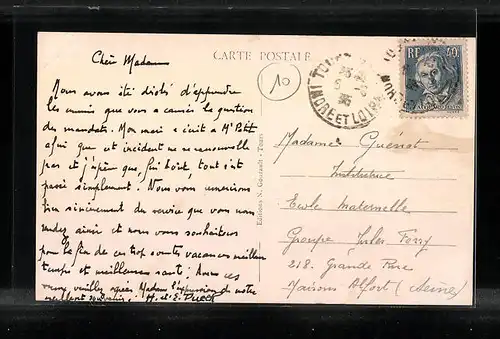 CARTE POSTALE
Chère Madame
10
Nous avons été désolés d'apprendre
les ennuis que vous a causés la question
des mandats. Mon mari écrit à Mr Petit
afin que cet incident ne se renouvelle
pas et j'espère que, tout est
passé simplement. Nous vous remercions
bien sincèrement du service que vous nous
rendez ainsi et nous vous souhaitons
pour la fin de ces trop courtes vacances meilleur
temps et meilleure santé. Avec ces
vœux veuillez agréer Madame l'expression de notre
meilleur souvenir. H. et E.
Editions N. Gouvault - Toul
TOURS
INDRE ET LOIRE
RF 40c
Madame Guénot
Institutrice
Ecole Maternelle
Groupe Jules Ferry
218. Grande Rue
Maisons Alfort (Seine)